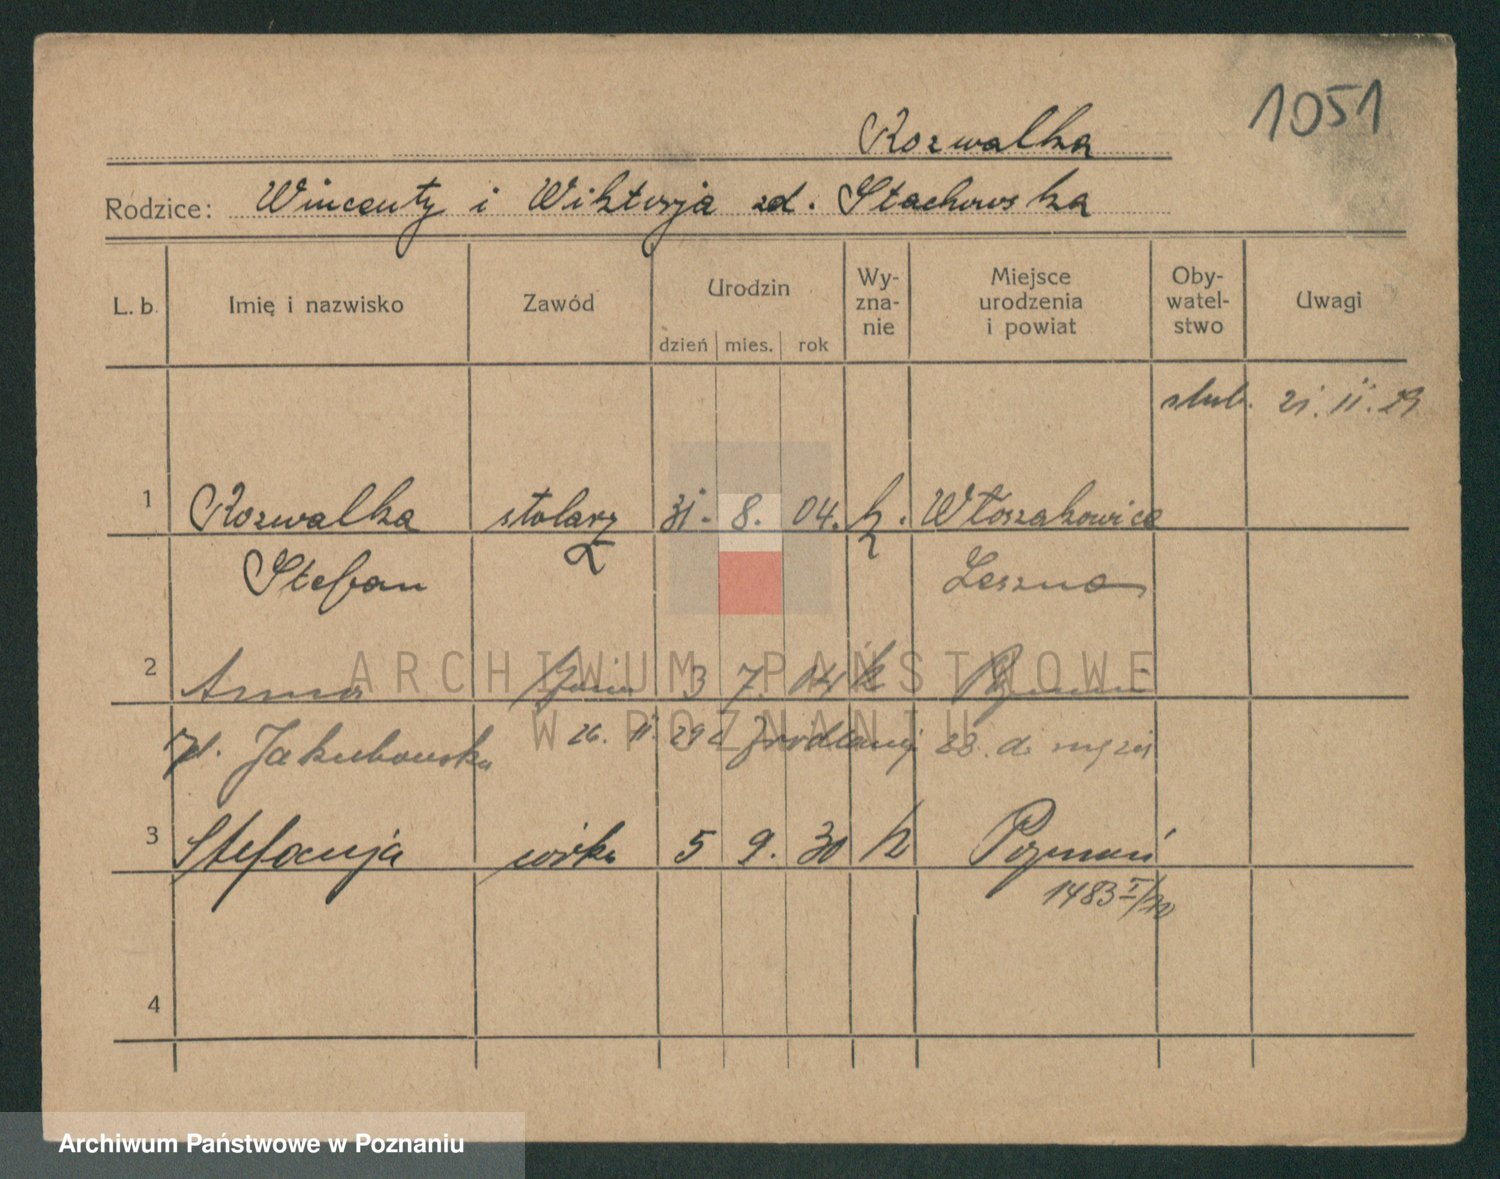 1051
Rozwalka
Rodzice: Wincenty i Wiktorja zd. Stachowska
L. b. Imię i nazwisko Zawód Urodzin dzień mies. rok Wy-zna-nie Miejsce urodzenia i powiat Oby-watel-stwo Uwagi
ślub. 21. 11. 29
1 Rozwalka stolarz 31. 8. 04. k. Włoszakowice
Stefan Leszno
2 Anna żona 3 7. 04 k Poznań
zd. Jakubowska 26. 11. 29 z 23. do męża
3 Stefanja córka 5 9. 30 k Poznań
1483 I/30
4
ARCHIWUM PAŃSTWOWE
W POZNANIU
Archiwum Państwowe w Poznaniu